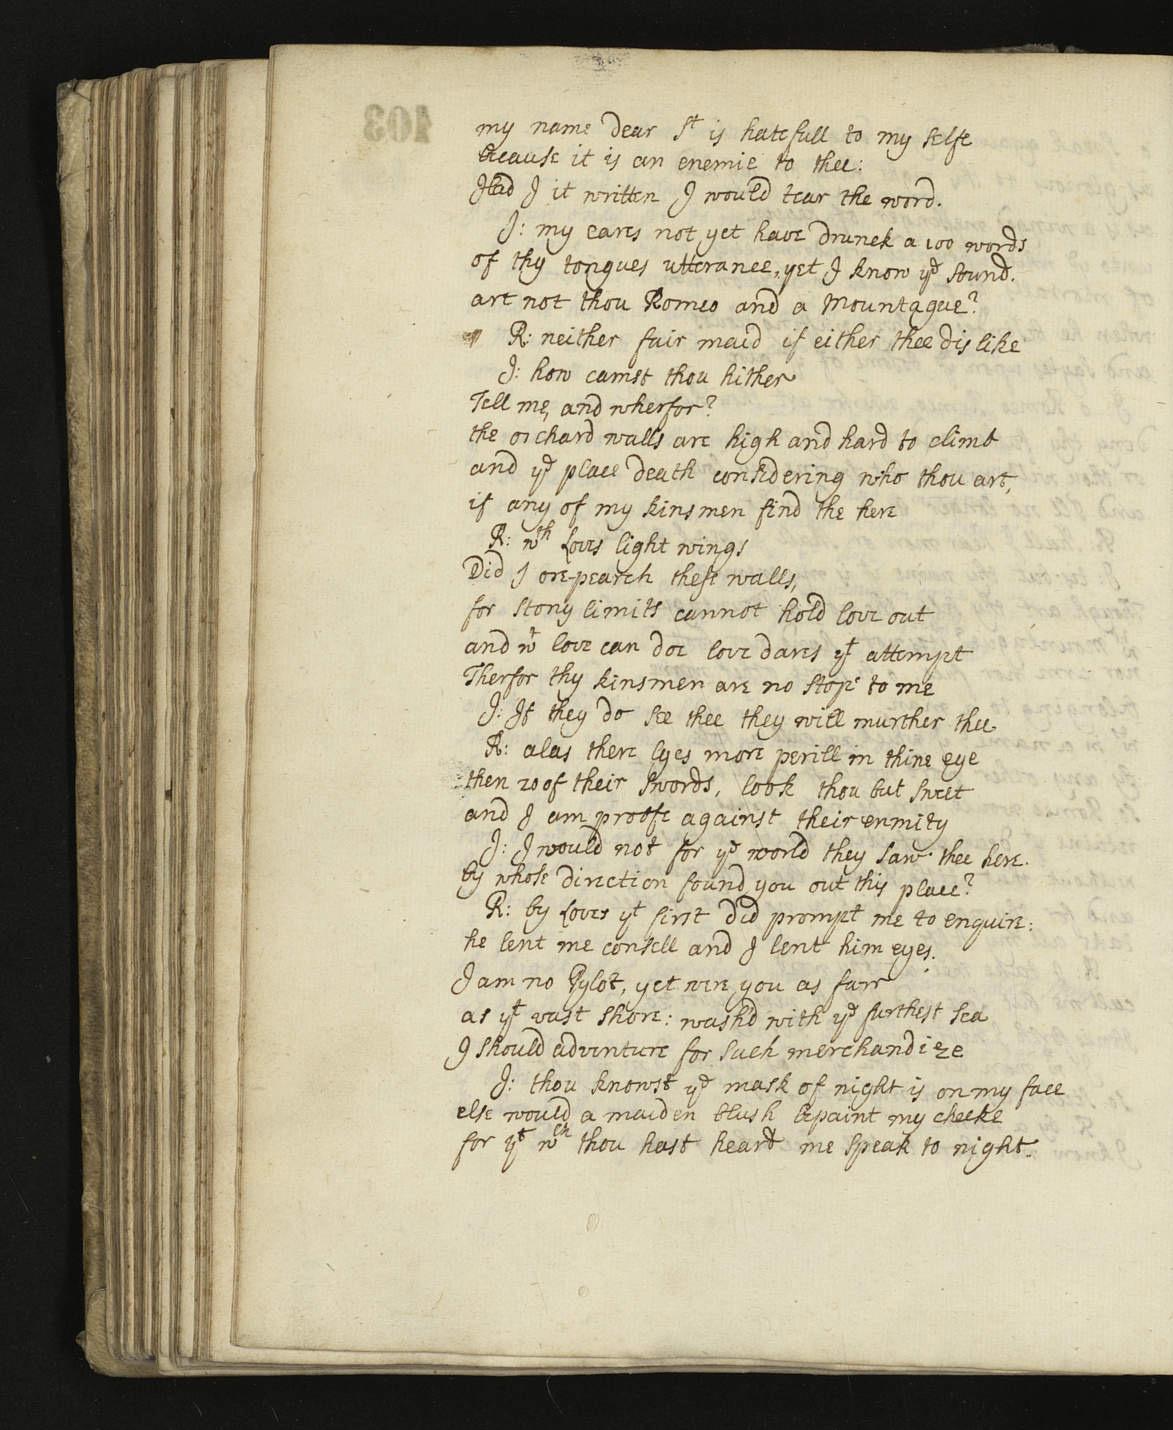 my name dear Sᵗ is hatefull to my selfe
Because it is an enemie to thee:
Had I it written I would tear the word.
J: my eares not yet have drunck a 100 words
of thy tongues utterance, yet I know yᵉ sound.
art not thou Romeo and a Mountague?
R: neither fair maid if either thee dislike
J: how camst thou hither
Tell me, and wherfor?
the orchard walls are high and hard to climb
and yᵉ place death considering who thou art,
if any of my kinsmen find the here
R: wᵗʰ Loves light wings
Did I ore-pearch these walls,
for stony limits cannot hold love out
and wᵗ love can doe love dares yᵗ attempt
Therfor thy kinsmen are no stop to me
J: If they do see thee they will murther thee
R: alas there lyes more perill in thine eye
then 20 of their swords, look thou but sweet
and I am proofe against their enmity
J: I would not for yᵉ world they saw thee here.
by whose direction found you out this place?
R: by Loves yᵗ first did prompt me to enquire:
he lent me consell and I lent him eyes.
I am no Pylot, yet were you as farr
as yᵗ vast shore: washd with yᵉ furthest sea
I should adventure for such merchandize
J: thou knowst yᵉ mask of night is on my face
else would a maiden blush bepaint my cheeke
for yᵗ wᶜʰ thou hast heard me speak to night.